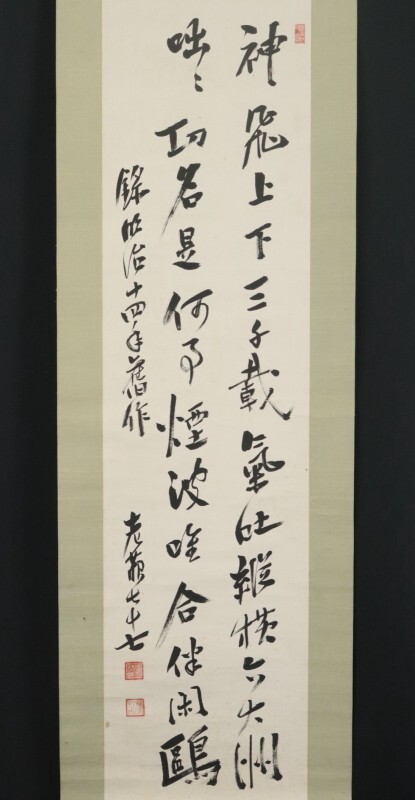 神飛上下三千載氣吐縱橫六大洲
咄々功名是何事煙波唯合伴閑鷗
錄明治十四年舊作
老蘇七十七